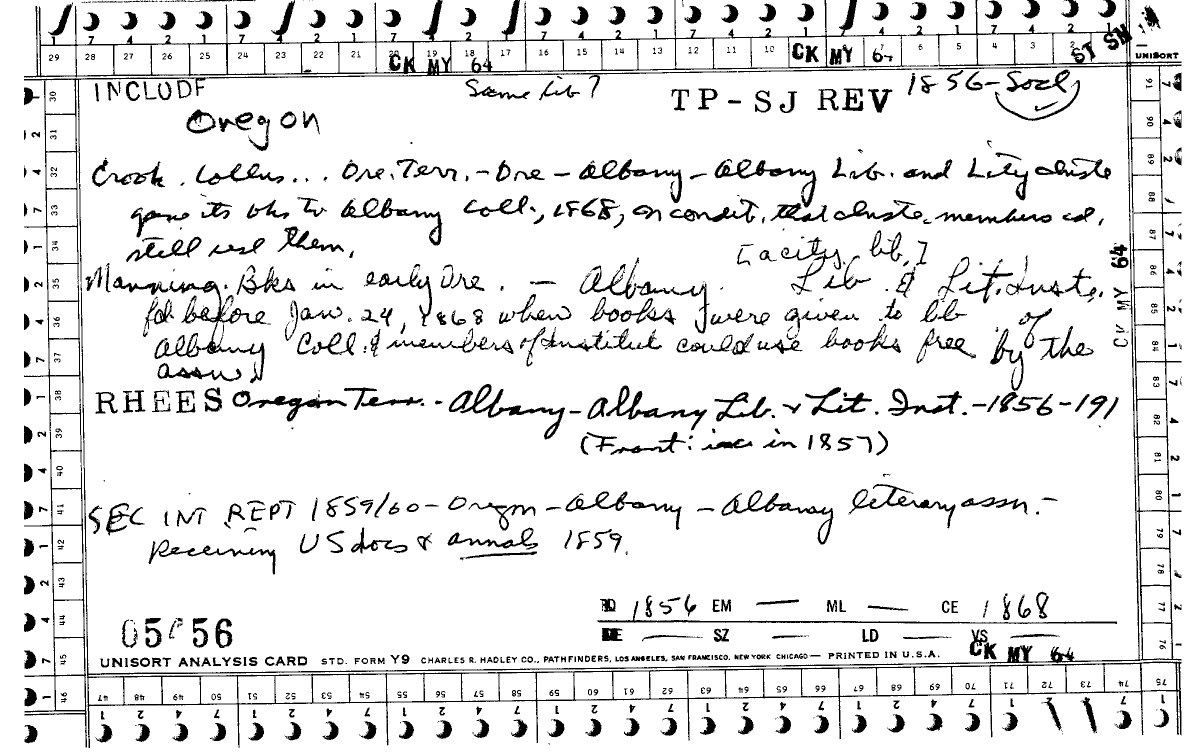 1 7 4 2 1 7 4 2 1 7 4 2 1 7 4 2 1 7 4 2 1 7 4 2 1 7 4 2 1
29 28 27 26 25 24 23 22 21 20 19 18 17 16 15 14 13 12 11 10 7 6 5 4 3 2 UNISORT
CK MY 64 CK MY 64 ST SM
INCLUDE Same Lib? TP-SJ REV 1856-Socl
Oregon
Crook. Collns... Ore. Terr. - Ore - Albany - Albany Lib. and Lity Inste
gave its bks to Albany Coll., 1868, on condit. that Inste. members cd.
still use them.
[a city lib.]
Manning. Bks in early Ore. - Albany. Lib & Lit. Inste.
fd. before Jan. 24, 1868 when books were given to lib of
Albany Coll. & members of Institut could use books free by the
assn.
RHEES Oregon Terr. - Albany - Albany Lib. & Lit. Inst. - 1856 - 191
(Front: inc in 1857)
SEC INT REPT 1859/60 - Oregon - Albany - Albany literary assn. -
Receiving US docs & annals 1859.
1856 EM — ML — CE 1868
05 56
DE — SZ — LD — VS —
CK MY 64
UNISORT ANALYSIS CARD STD. FORM Y9 CHARLES R. HADLEY CO., PATHFINDERS, LOS ANGELES, SAN FRANCISCO, NEW YORK CHICAGO — PRINTED IN U.S.A.
30 31 32 33 34 35 36 37 38 39 40 41 42 43 44 45 46
91 90 89 88 87 86 85 84 83 82 81 80 79 78 77 76 75
CK MY 64
47 48 49 50 51 52 53 54 55 56 57 58 59 60 61 62 63 64 65 66 67 68 69 70 71 72 73 74
1 2 4 7 1 2 4 7 1 2 4 7 1 2 4 7 1 2 4 7 1 2 4 7 1 7